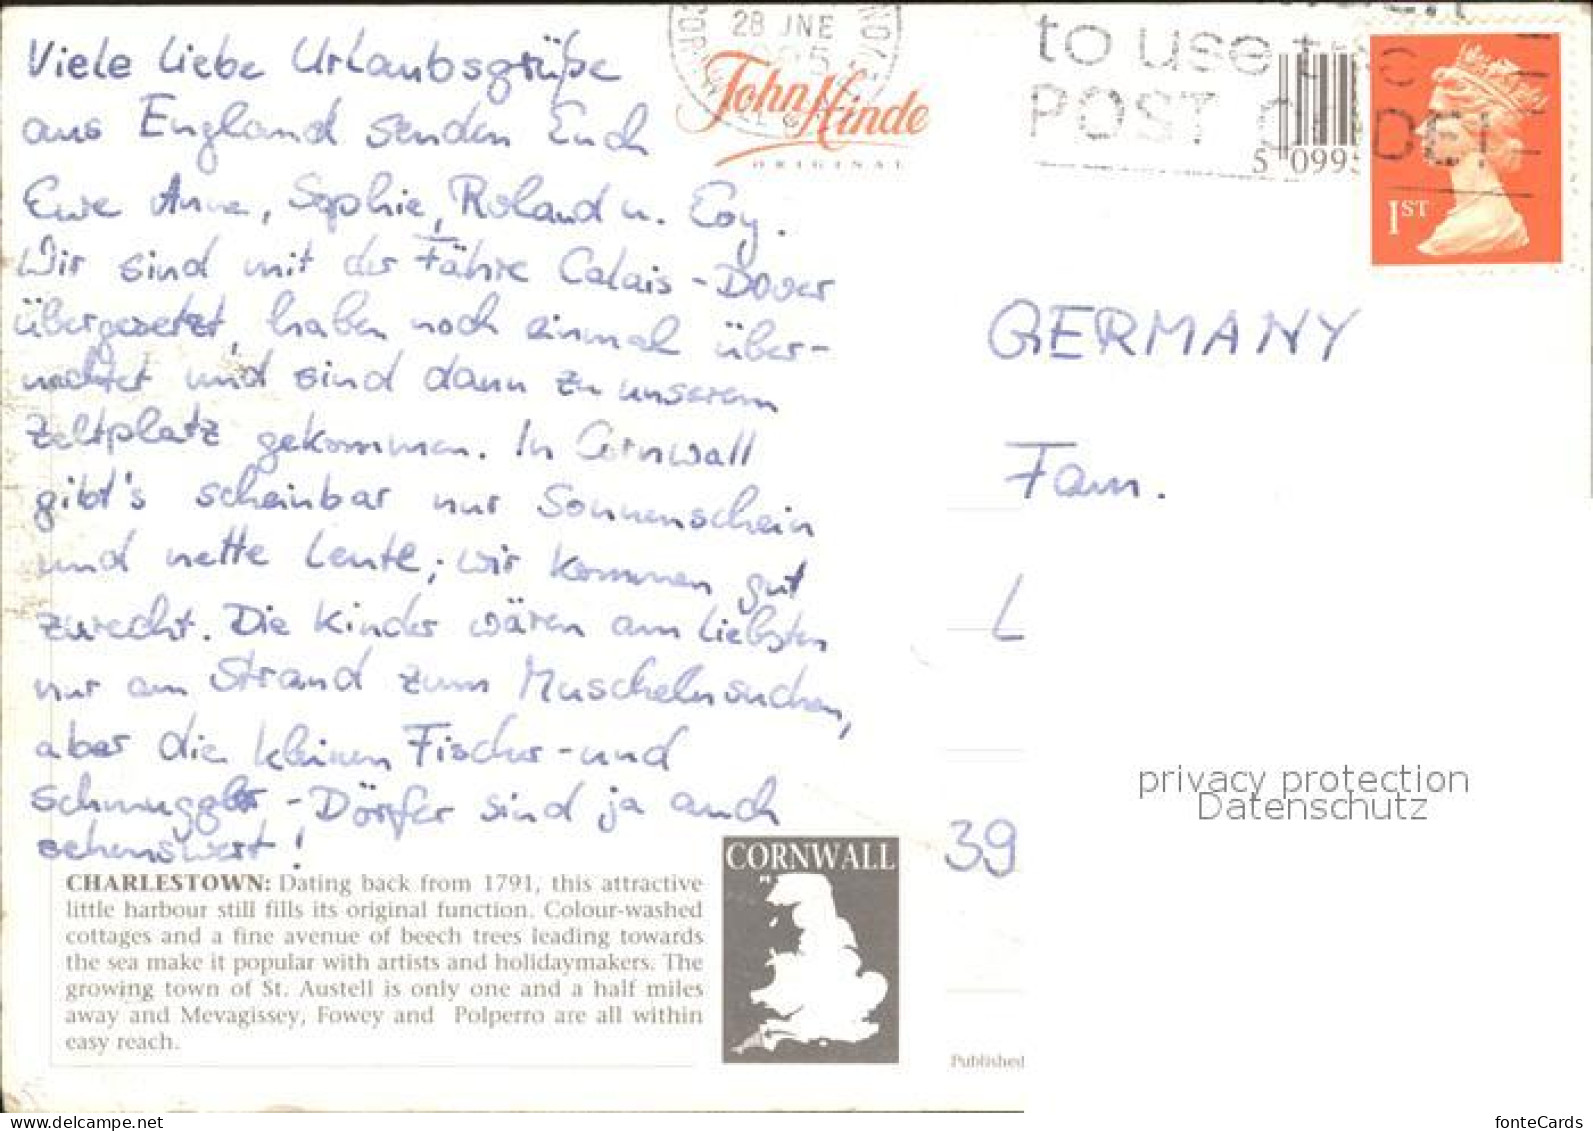 Viele liebe Urlaubsgrüße
aus England senden Euch
Eure Anne, Sophie, Roland u.
Wir sind mit der Fähre Calais - Dover
übergesetzt, haben noch einmal über-
nachtet und sind dann zu unserem
Zeltplatz gekommen. In Cornwall
gibt's scheinbar nur Sonnenschein
und nette Leute; wir kommen gut
zurecht. Die Kinder wären am liebsten
nur am Strand zum Muschelnsuchen,
aber die kleinen Fischer- und
Schmuggler-Dörfer sind ja auch
sehenswert!
CHARLESTOWN: Dating back from 1791, this attractive
little harbour still fills its original function. Colour-washed
cottages and a fine avenue of beech trees leading towards
the sea make it popular with artists and holidaymakers. The
growing town of St. Austell is only one and a half miles
away and Mevagissey, Fowey and Polperro are all within
easy reach.
CORNWALL
28 JNE
John Hinde
ORIGINAL
to use
POST
5 099
1ST
GERMANY
Fam.
L
39
privacy protection
Datenschutz
Published
www.delcampe.net
fonteCards